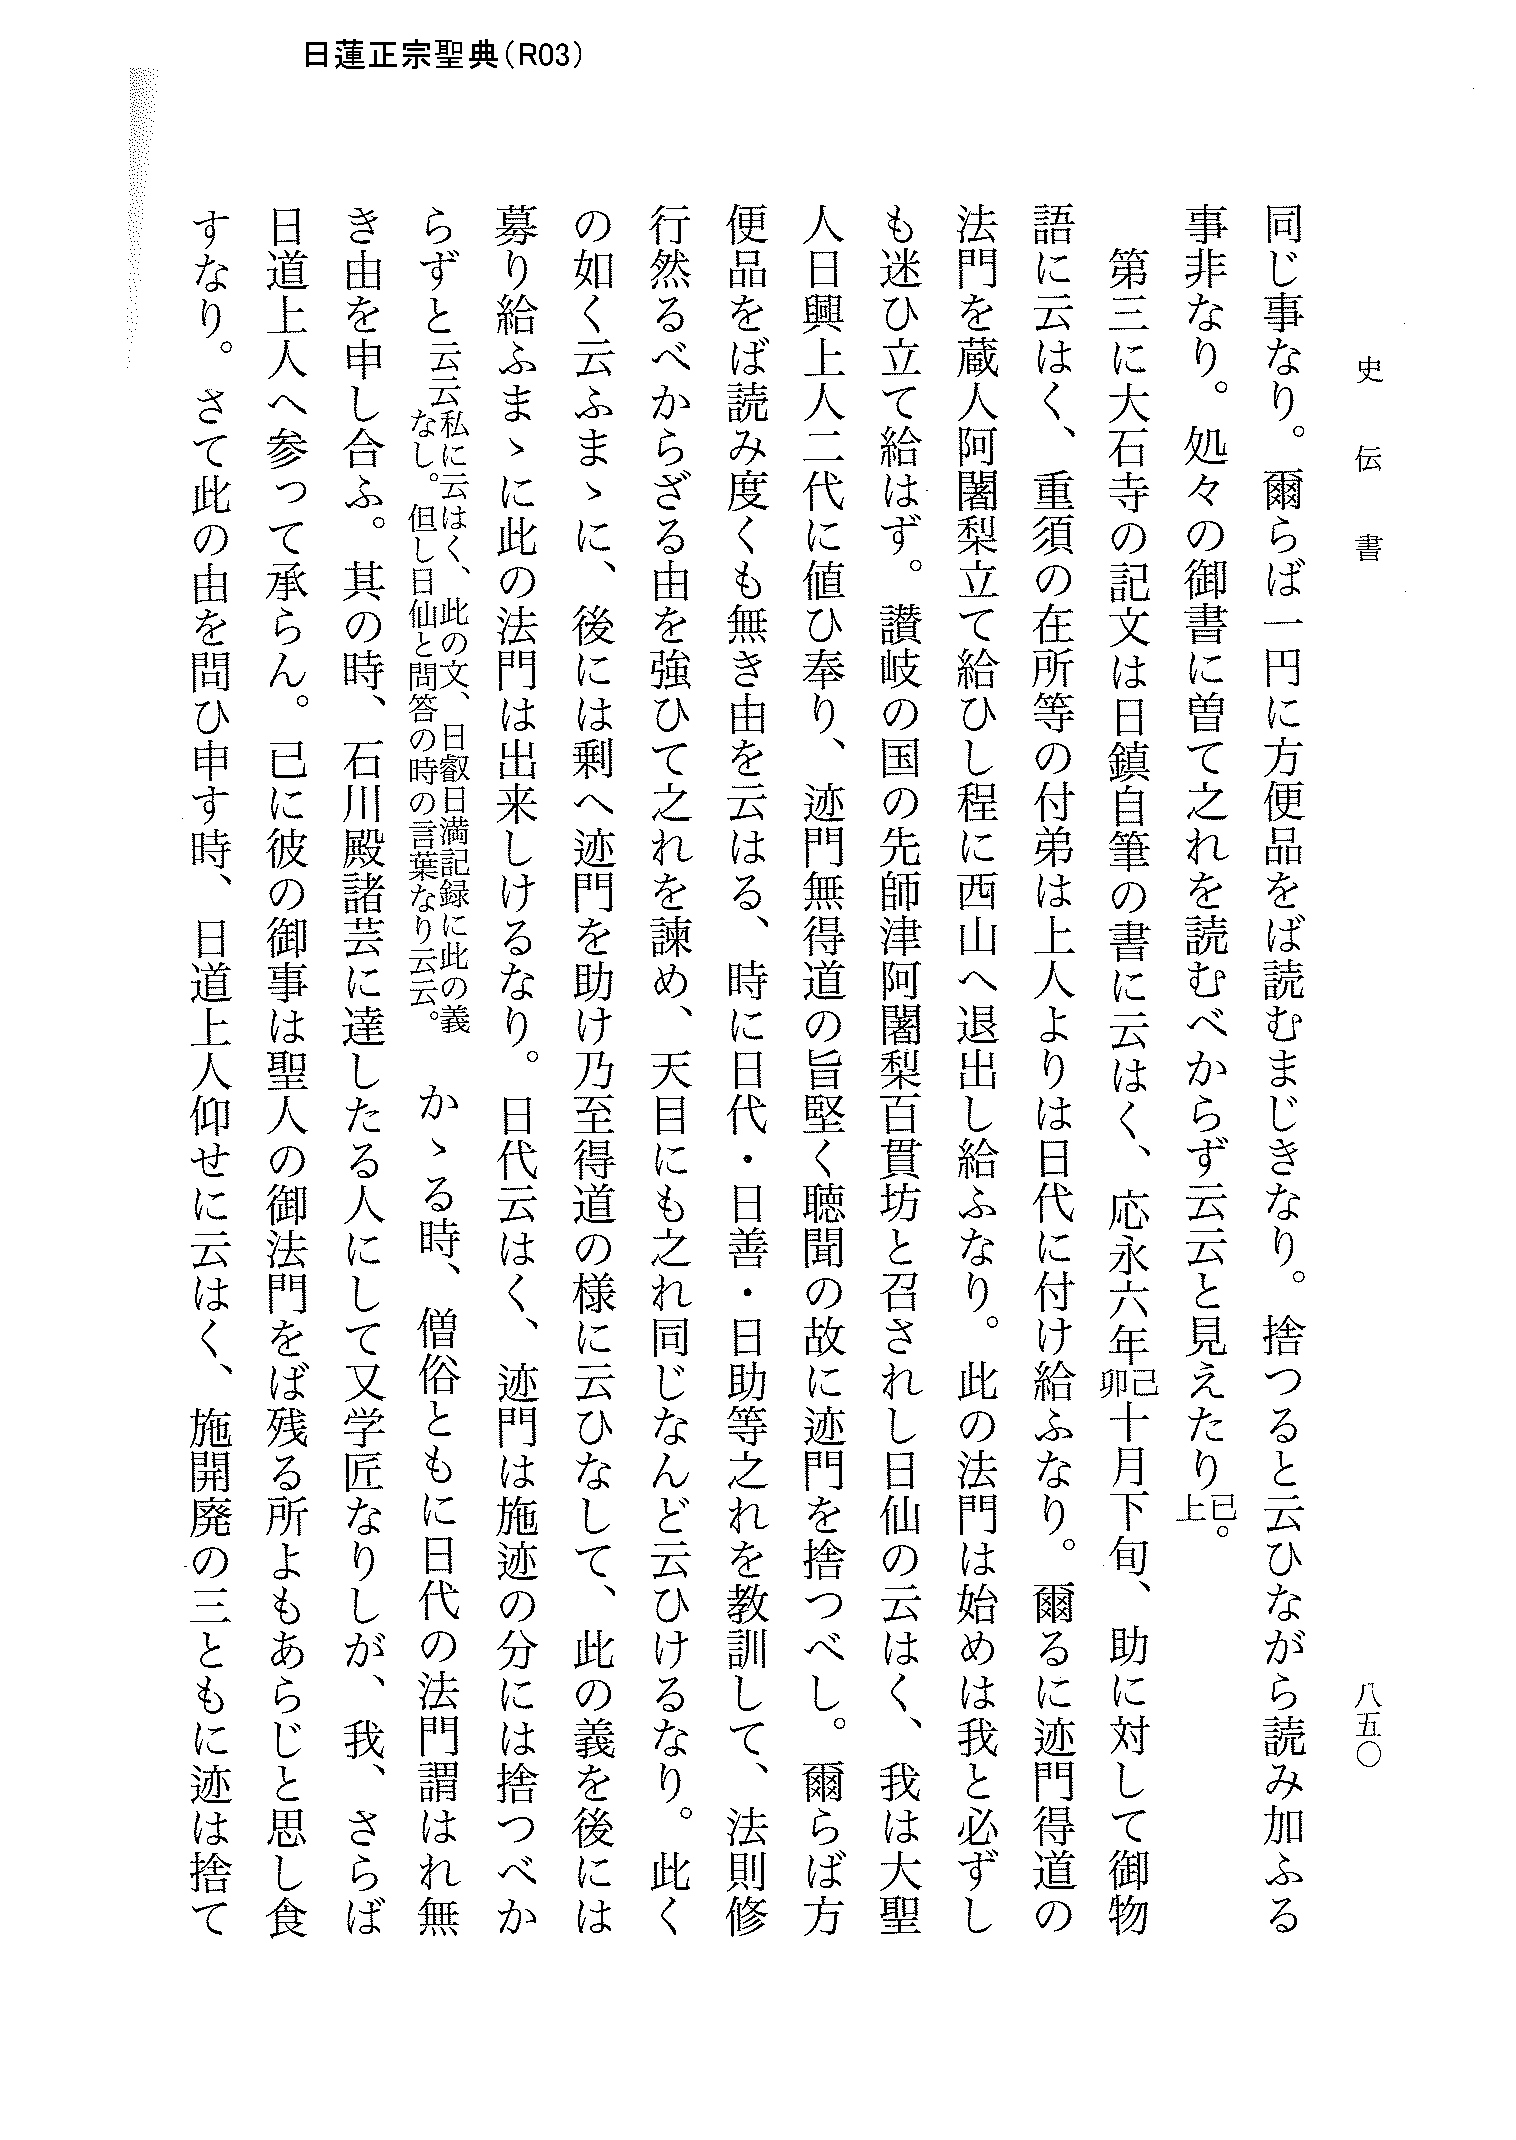 日蓮正宗聖典（R03）
史伝書
八五〇
同じ事なり。爾らば一円に方便品をば読むまじきなり。捨つると云ひながら読み加ふる
事非なり。処々の御書に曽て之れを読むべからず云云と見えたり已上。
第三に大石寺の記文は日鎮自筆の書に云はく、応永六年己卯十月下旬、助に対して御物
語に云はく、重須の在所等の付弟は上人よりは日代に付け給ふなり。爾るに迹門得道の
法門を蔵人阿闍梨立て給ひし程に西山へ退出し給ふなり。此の法門は始めは我と必ずし
も迷ひ立て給はず。讃岐の国の先師津阿闍梨百貫坊と召されし日仙の云はく、我は大聖
人日興上人二代に値ひ奉り、迹門無得道の旨堅く聴聞の故に迹門を捨つべし。爾らば方
便品をば読み度くも無き由を云はる、時に日代・日善・日助等之れを教訓して、法則修
行然るべからざる由を強ひて之れを諫め、天目にも之れ同じなんど云ひけるなり。此く
の如く云ふまゝに、後には剰へ迹門を助け乃至得道の様に云ひなして、此の義を後には
募り給ふまゝに此の法門は出来しけるなり。日代云はく、迹門は施迹の分には捨つべか
らずと云云私に云はく、此の文、日叡日満記録に此の義なし。但し日仙と問答の時の言葉なり云云。　かゝる時、僧俗ともに日代の法門謂はれ無
き由を申し合ふ。其の時、石川殿諸芸に達したる人にして又学匠なりしが、我、さらば
日道上人へ参って承らん。已に彼の御事は聖人の御法門をば残る所よもあらじと思し食
すなり。さて此の由を問ひ申す時、日道上人仰せに云はく、施開廃の三ともに迹は捨て